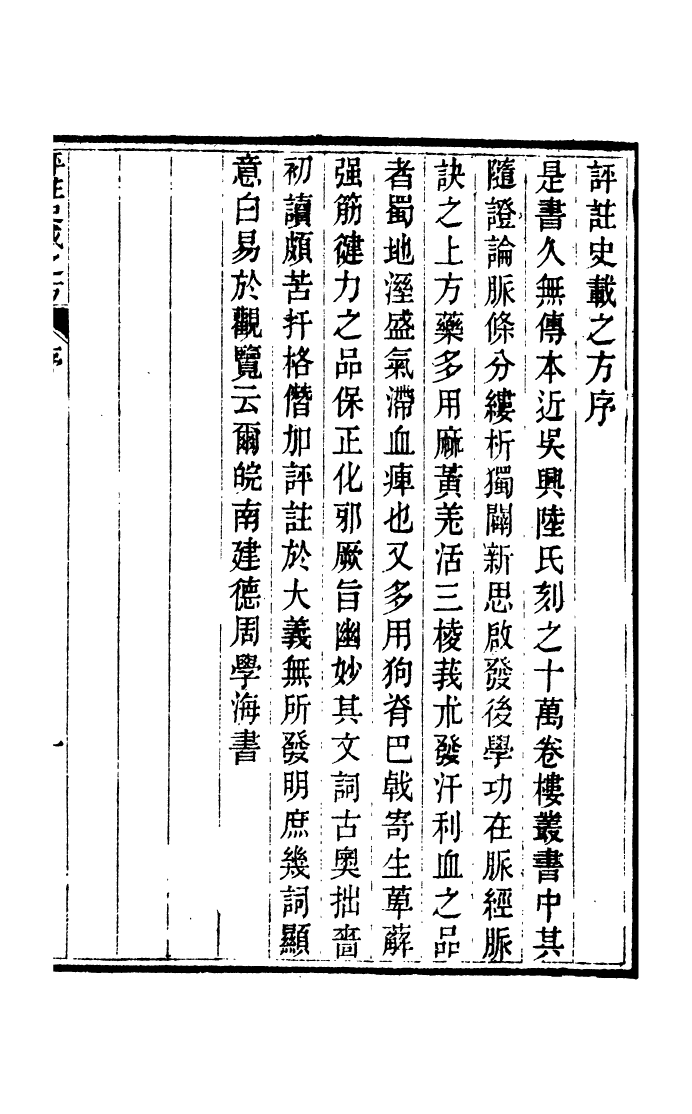 評註史載之方序
是書久無傳本近吳興陸氏刻之十萬卷樓叢書中其
隨證論脈條分縷析獨闢新思啟發後學功在脈經脈
訣之上方藥多用麻黃羌活三棱莪朮發汗利血之品
者蜀地溼盛氣滯血痺也又多用狗脊巴戟寄生萆薢
强筋健力之品保正化邪厥旨幽妙其文詞古奧拙嗇
初讀頗苦扞格僭加評註於大義無所發明庶幾詞顯
意白易於觀覽云爾皖南建德周學海書
評註史載之方
序
一